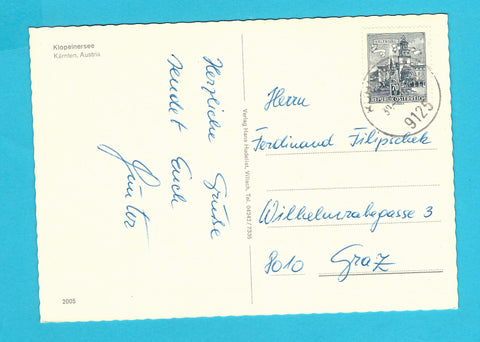 Klopeinersee
Kärnten, Austria
Herzliche Grüße
sendet Euch
Günter
2005
Verlag Hans Hudelist, Villach, Tel. 04242/7335
REPUBLIK ÖSTERREICH
9125
Herrn
Ferdinand Filipschek
Wilhelmraabegasse 3
8010 Graz